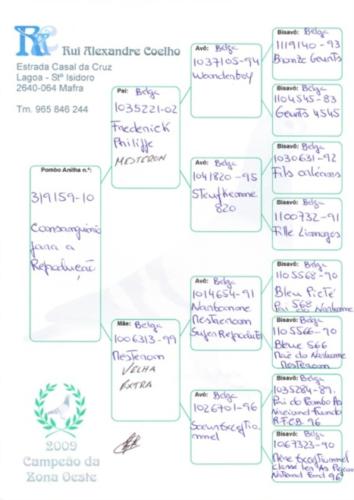 Rui Alexandre Coelho
Estrada Casal da Cruz
Lagoa - Stº Isidoro
2640-064 Mafra
Tm. 965 846 244
Pombo Anilha n.º:
319159-10
Consanguinio
para a
Reprodução
Pai: Belga
1035221-02
Frederick
Philiffe
MESTERON
Mãe: Belga
1006313-99
Nesteroom
VELHA
EXTRA
Avô: Belga
1037105-94
Wonderboy
Avó: Belga
1041820-95
820
Avô: Belga
1014654-91
Narbonne
Super Reprodutor
Avó: Belga
1026701-96
Bisavô: Belga
1119140-93
Bronze Geunts
Bisavó: Belga
1104545-83
Geunts 4545
Bisavô: Belga
1030631-92
Fils orléans
Bisavó: Belga
1100732-91
Fille Limoges
Bisavô: Belga
1105568-90
Bleu Picté
568
Pai do Narbonne
Bisavó: Belga
1105566-90
Bleue 566
Mãe do Narbonne
Bisavô: Belga
1035284-87
Pai do Pombo As
Nacional Fundo
R.F.C.B. 96
Bisavó: Belga
1067323-90
2009
Campeão da
Zona Oeste